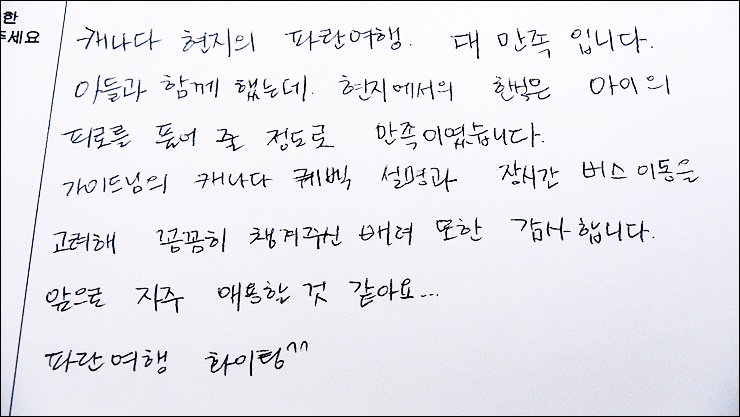 한
주세요
캐나다 현지의 파란여행. 대 만족 입니다.
아들과 함께 했는데. 현지에서의 한벌은 아이의
피로를 풀어 줄 정도로 만족이였습니다.
가이드님의 캐나다 퀘벡 설명과 장시간 버스 이동을
고려해 꼼꼼히 챙겨주신 배려 또한 감사합니다.
앞으로 자주 애용할 것 같아요...
파란여행 화이팅^^